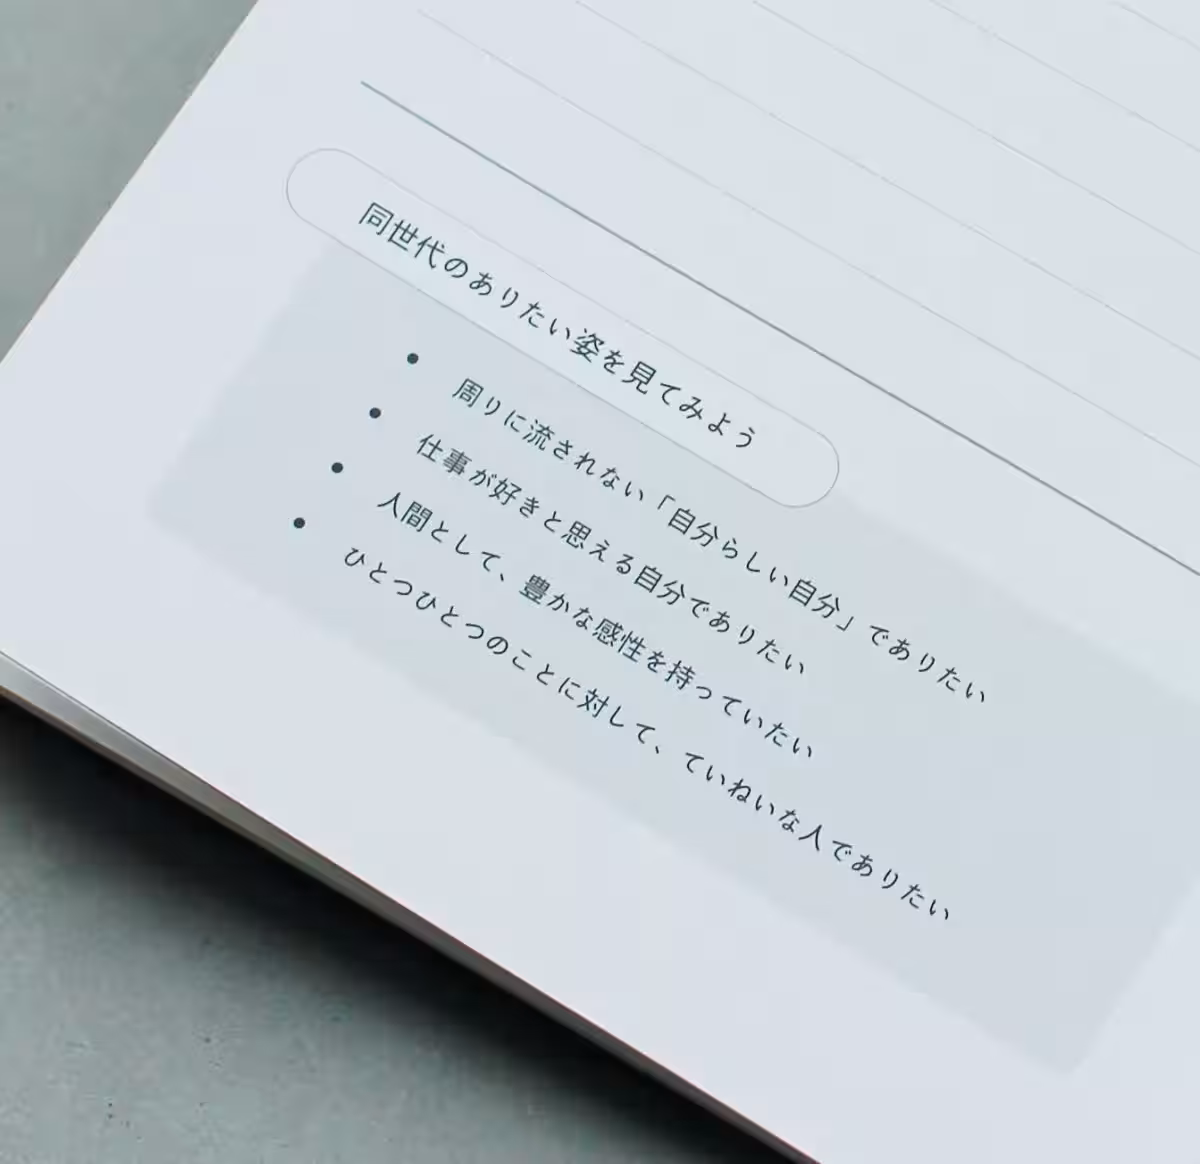 同世代のありたい姿を見てみよう
● 周りに流されない「自分らしい自分」でありたい
● 仕事が好きと思える自分でありたい
● 人間として、豊かな感性を持っていたい
● ひとつひとつのことに対して、ていねいな人でありたい